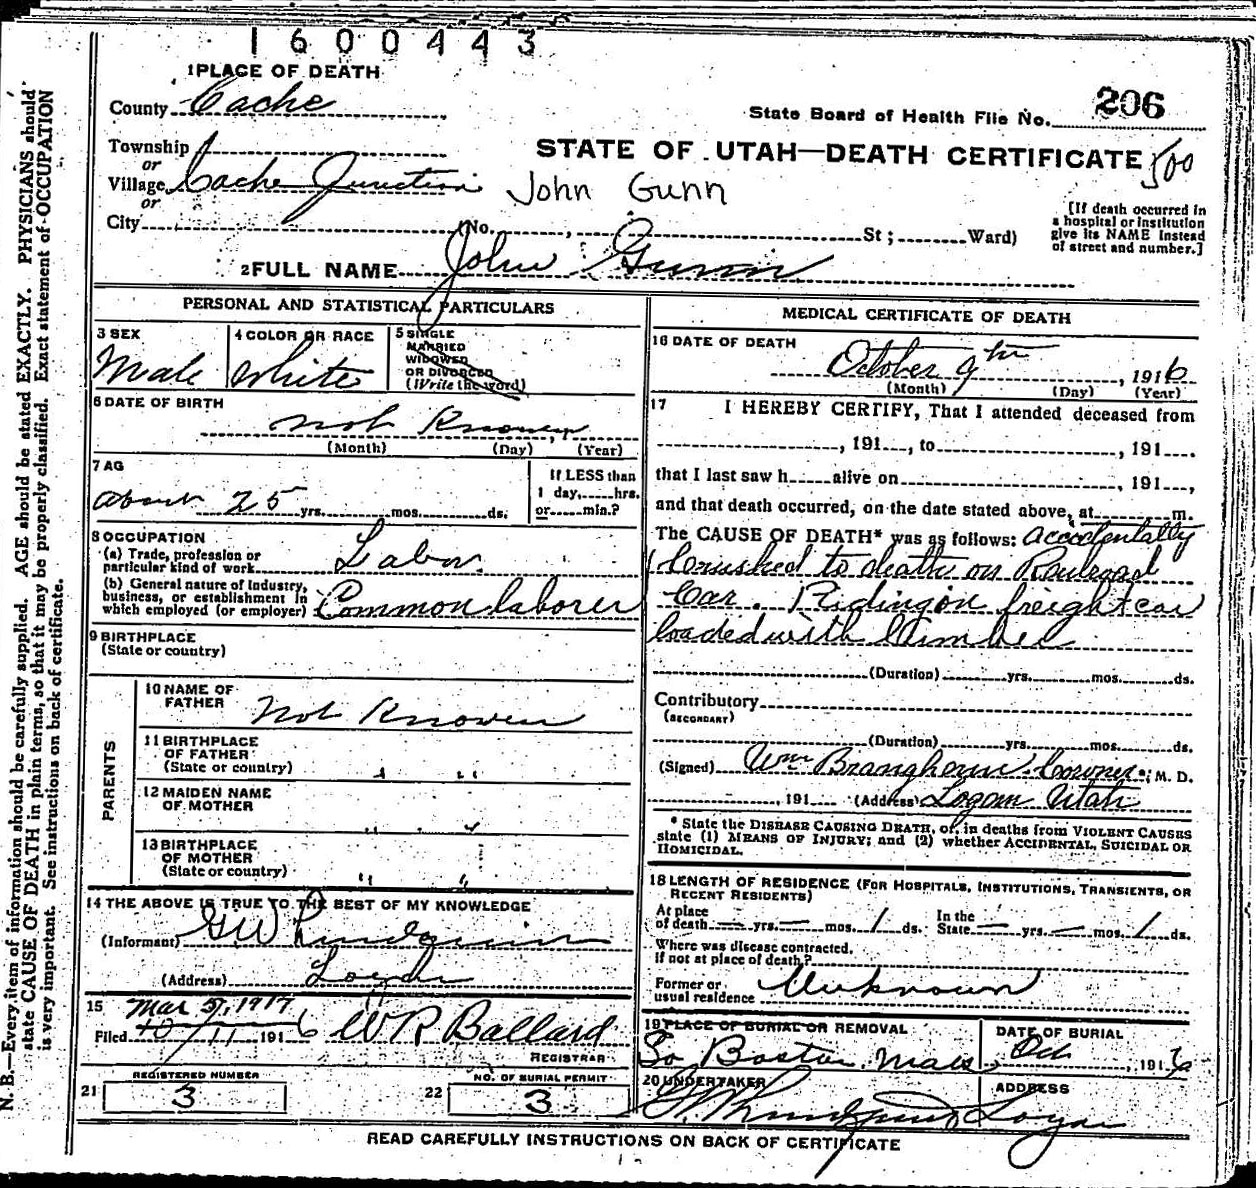 1600443
1 PLACE OF DEATH
County Cache
State Board of Health File No. 206
Township
or
STATE OF UTAH—DEATH CERTIFICATE 500
Village Cache Junction John Gunn
or
City (No. , St ; Ward)
[If death occurred in
a hospital or institution
give its NAME instead
of street and number.]
2 FULL NAME John Gunn
PERSONAL AND STATISTICAL PARTICULARS
3 SEX
Male
4 COLOR OR RACE
White
5 SINGLE
MARRIED
WIDOWED
OR DIVORCED
(Write the word)
6 DATE OF BIRTH
not Known
(Month) (Day) (Year)
7 AG
about 25 yrs. mos. ds.
If LESS than
1 day, hrs.
or min.?
8 OCCUPATION
(a) Trade, profession or
particular kind of work Labor.
(b) General nature of industry,
business, or establishment in
which employed (or employer) Common laborer
9 BIRTHPLACE
(State or country)
PARENTS
10 NAME OF
FATHER not Knowen
11 BIRTHPLACE
OF FATHER
(State or country) " "
12 MAIDEN NAME
OF MOTHER " "
13 BIRTHPLACE
OF MOTHER
(State or country) " "
14 THE ABOVE IS TRUE TO THE BEST OF MY KNOWLEDGE
(Informant) G W
(Address) Logan
15 Mar 5, 1917
Filed 10/11 1916 W R Ballard
REGISTRAR
REGISTERED NUMBER
21 3
NO. OF BURIAL PERMIT
22 3
MEDICAL CERTIFICATE OF DEATH
16 DATE OF DEATH
October 9th, 1916
(Month) (Day) (Year)
17 I HEREBY CERTIFY, That I attended deceased from
, 191 , to , 191 .
that I last saw h alive on , 191 ,
and that death occurred, on the date stated above, at m.
The CAUSE OF DEATH* was as follows: accidentally
Crushed to death on Railroad
Car. Riding on freight car
loaded with
(Duration) yrs. mos. ds.
Contributory
(SECONDARY)
(Duration) yrs. mos. ds.
(Signed) Wm Branghorn Corner, M. D.
, 191 (Address) Logan Utah
* State the DISEASE CAUSING DEATH, or, in deaths from VIOLENT CAUSES
state (1) MEANS OF INJURY; and (2) whether ACCIDENTAL, SUICIDAL OR
HOMICIDAL.
18 LENGTH OF RESIDENCE (FOR HOSPITALS, INSTITUTIONS, TRANSIENTS, OR
RECENT RESIDENTS)
At place
of death — yrs. — mos. 1 ds.
In the
State — yrs. — mos. 1 ds.
Where was disease contracted,
if not at place of death?
Former or
usual residence Unknown
19 PLACE OF BURIAL OR REMOVAL
So Boston Mass
DATE OF BURIAL
Oct , 1916
20 UNDERTAKER
ADDRESS
Logan
READ CAREFULLY INSTRUCTIONS ON BACK OF CERTIFICATE
N. B.—Every item of information should be carefully supplied. AGE should be stated EXACTLY. PHYSICIANS should
state CAUSE OF DEATH in plain terms, so that it may be properly classified. Exact statement of OCCUPATION
is very important. See instructions on back of certificate.